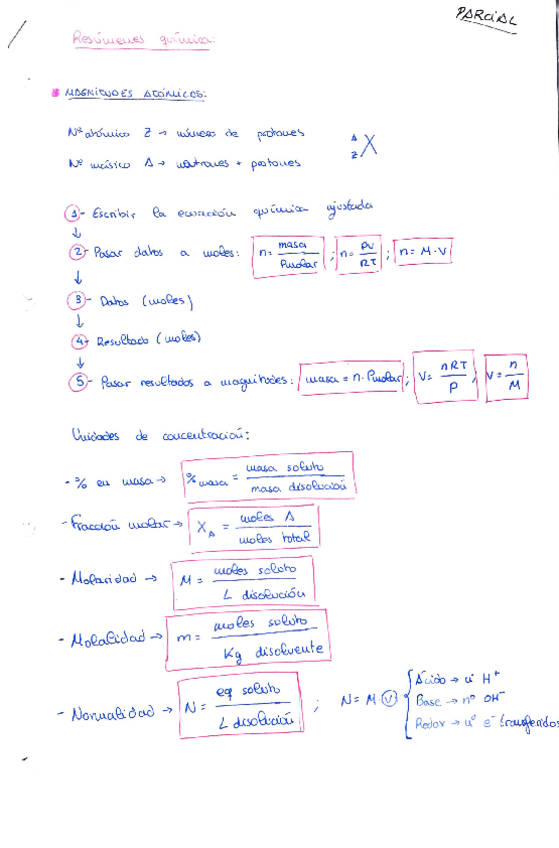 PARCIAL
Resúmenes química:
* MAGNITUDES ATÓMICAS:
Nº atómico Z → número de protones
Nº másico A → neutrones + protones
A Z X
1- Escribir la ecuación química ajustada
↓
2- Pasar datos a moles: n = masa / Pmolar ; n = PV / RT ; n = M · V
↓
3- Datos (moles)
↓
4- Resultado (moles)
↓
5- Pasar resultados a magnitudes: masa = n · Pmolar ; V = nRT / P ; V = n / M
Unidades de concentración:
- % en masa → % masa = masa soluto / masa disolución
- Fracción molar → X_A = moles A / moles total
- Molaridad → M = moles soluto / L disolución
- Molalidad → m = moles soluto / Kg disolvente
- Normalidad → N = eq soluto / L disolución ; N = M · V
Ácido → nº H⁺
Base → nº OH⁻
Redox → nº e⁻ transferidos